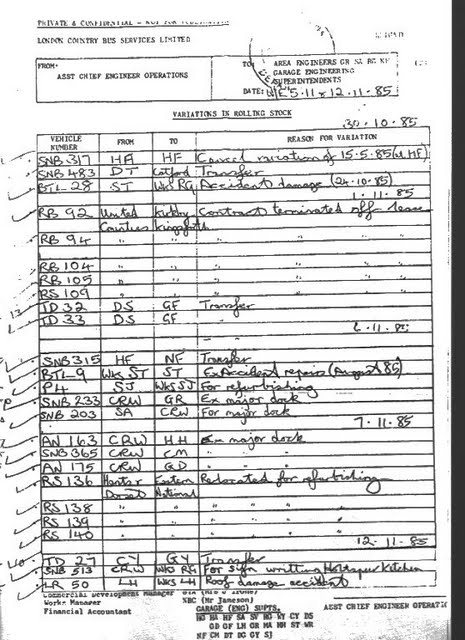 PRIVATE & CONFIDENTIAL - NOT FOR PUBLICATION
LONDON COUNTRY BUS SERVICES LIMITED
FROM- ASST CHIEF ENGINEER OPERATIONS
TO AREA ENGINEERS GR SA RG HF
GARAGE ENGINEERING
SUPERINTENDENTS
DATE: W/E 5.11 & 12.11.85
VARIATIONS IN ROLLING STOCK
30.10.85
VEHICLE NUMBER FROM TO REASON FOR VARIATION
SNB 317 HA HF Cancel variation of 15.5.85 (at HF)
SNB 483 DT Catford Transfer
BTL-28 ST WKS RG Accident damage (24.10.85)
1.11.85
RB 92 United Counties Kirkby Kingsforth Contract terminated off-lease
RB 94 " " " " "
RB 104 " " " " "
RB 105 " " " " "
RS 109 " " " " "
TD 32 DS GF Transfer
TD 33 DS GF "
6.11.85
SNB 315 HF NF Transfer
BTL-9 WKS ST ST Ex Accident repairs (August 85)
P4 SJ WKS SJ For refurbishing
SNB 233 CRW GR Ex major dock
SNB 203 SA CRW For major dock
7.11.85
AN 163 CRW HH Ex major dock
SNB 365 CRW CM " "
AN 175 CRW GD " "
RS 136 Hants & Dorset Eastern National Relocated for refurbishing
RS 138 " " " " "
RS 139 " " " " "
RS 140 " " " " "
12.11.85
TD 27 CY GY Transfer
SNB 513 CRW WKS RG For sign writting Holtspur Kitchen
LR 50 LH WKS LH Roof damage accident
Commercial Development Manager
Works Manager NBC (Mr Jameson)
Financial Accountant GARAGE (ENG) SUPTS. ASST CHIEF ENGINEER OPERATIO
HG HA HF SA SV HG WY CY DS
GD GF LH GR MA HH ST WR
NF CM DT DG GY SJ